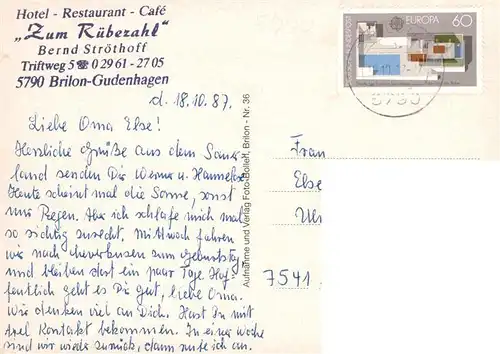 Hotel - Restaurant - Café
„Zum Rübezahl"
Bernd Ströthoff
Triftweg 5 ☎ 0 29 61 - 27 05
5790 Brilon-Gudenhagen
EUROPA 60
d. 18.10.87.
Liebe Oma Else!
Herzliche Grüße aus dem Sauer-
land senden Dir Werner u. Hannelore.
Heute scheint mal die Sonne, sonst
nur Regen. Aber ich schlafe mich mal
so richtig zurecht. Mittwoch fahren
wir nach Leverkusen zum Geburtstag,
und bleiben dort ein paar Tage. Hof-
fentlich geht es Dir gut, liebe Oma.
Wir denken viel an Dich. Hast Du mit
Kontakt bekommen. In einer Woche
sind wir wieder zurück, dann rufe ich an.
Aufnahme und Verlag Foto-Bolleri, Brilon - Nr. 36
Frau
Else
7541